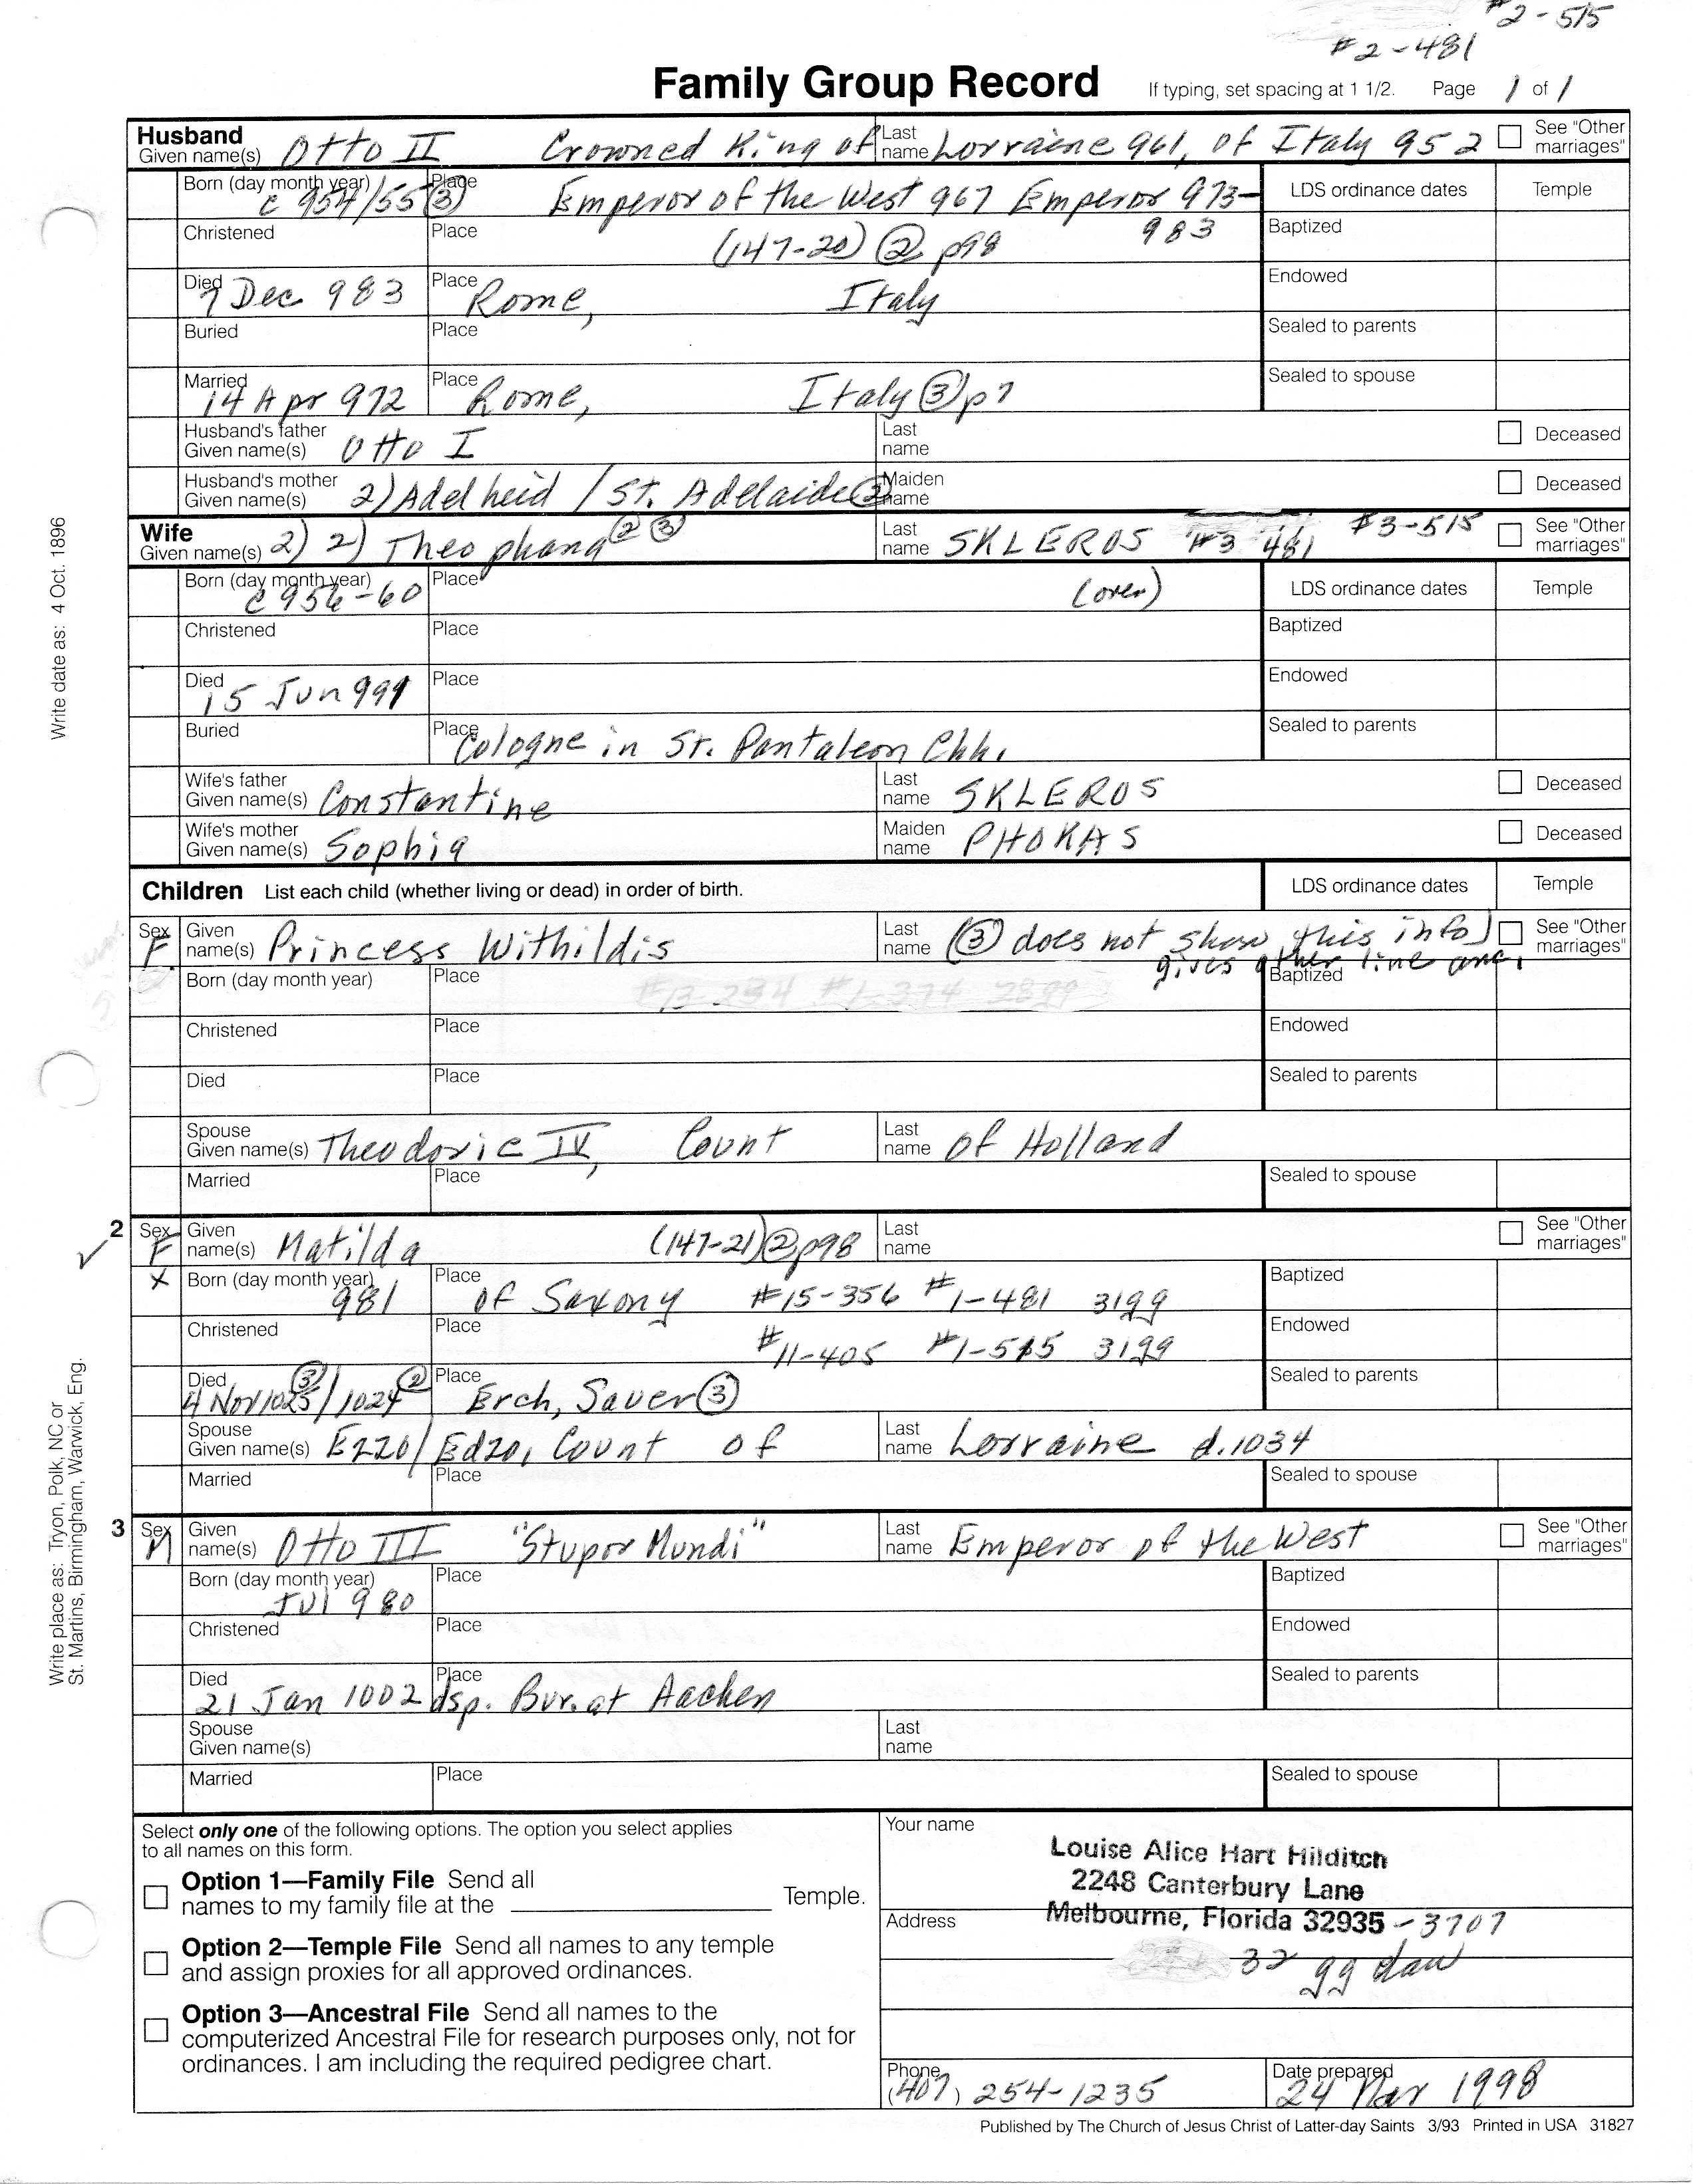 #2-515
#2-481
Family Group Record If typing, set spacing at 1 1/2. Page 1 of 1
Husband
Given name(s) Otto II Crowned King of Last name Lorraine 961, of Italy 952 See "Other marriages"
Born (day month year) c 954/55 ③ Place Emperor of the West 967 Emperor 973- LDS ordinance dates Temple
983
Christened Place (147-20) ② p98 Baptized
Died 7 Dec 983 Place Rome, Italy Endowed
Buried Place Sealed to parents
Married 14 Apr 972 Place Rome, Italy ③ p7 Sealed to spouse
Husband's father
Given name(s) Otto I Last name Deceased
Husband's mother
Given name(s) 2) Adelheid / St. Adelaide ② Maiden name Deceased
Wife
Given name(s) 2) 2) Theophana ② ③ Last name SKLEROS #3 481 #3-515 See "Other marriages"
Born (day month year) c 956-60 Place (over) LDS ordinance dates Temple
Christened Place Baptized
Died 15 Jun 991 Place Endowed
Buried Place Cologne in St. Pantaleon Chh. Sealed to parents
Wife's father
Given name(s) Constantine Last name SKLEROS Deceased
Wife's mother
Given name(s) Sophia Maiden name PHOKAS Deceased
Children List each child (whether living or dead) in order of birth. LDS ordinance dates Temple
Sex F Given name(s) Princess Withildis Last name (③ does not show this info) See "Other marriages"
gives other line anc.
Born (day month year) Place #13-234 #1-374 28gg Baptized
Christened Place Endowed
Died Place Sealed to parents
Spouse
Given name(s) Theodoric IV, Count Last name of Holland
Married Place Sealed to spouse
2 Sex F Given name(s) Matilda (147-21) ② p98 Last name See "Other marriages"
✓
X Born (day month year) 981 Place of Saxony #15-356 #1-481 31gg Baptized
Christened Place #11-405 #1-515 31gg Endowed
Died 4 Nov 1025 ③ / 1024 ② Place Erch, Sauer ③ Sealed to parents
Spouse
Given name(s) Ezzo/Edzo, Count of Last name Lorraine d.1034
Married Place Sealed to spouse
3 Sex M Given name(s) Otto III "Stupor Mundi" Last name Emperor of the West See "Other marriages"
Born (day month year) Jul 980 Place Baptized
Christened Place Endowed
Died 21 Jan 1002 Place dsp. Bur. at Aachen Sealed to parents
Spouse
Given name(s) Last name
Married Place Sealed to spouse
Select only one of the following options. The option you select applies
to all names on this form.
Option 1—Family File Send all
names to my family file at the Temple.
Option 2—Temple File Send all names to any temple
and assign proxies for all approved ordinances.
Option 3—Ancestral File Send all names to the
computerized Ancestral File for research purposes only, not for
ordinances. I am including the required pedigree chart.
Your name
Louise Alice Hart Hilditch
2248 Canterbury Lane
Address Melbourne, Florida 32935 -3707
32 gg dau
Phone (407) 254-1235
Date prepared 24 Mar 1998
Published by The Church of Jesus Christ of Latter-day Saints 3/93 Printed in USA 31827
Write date as: 4 Oct. 1896
Write place as: Tryon, Polk, NC or
St. Martins, Birmingham, Warwick, Eng.